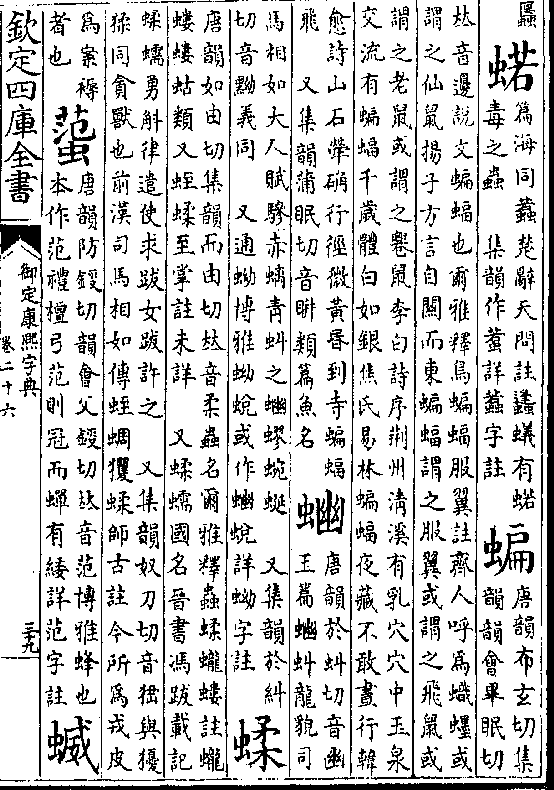 䘌 蛯 篇海同蠚楚辭天問註蠭蟻有蛯
毒之蟲 集韻作蠚詳蠚字註 蝙 唐韻布玄切集
韻韻會畢眠切
𡘋音邊說文蝙蝠也爾雅釋鳥蝙蝠服翼註齊人呼爲蟙䘃或
謂之仙鼠揚子方言自關而東蝙蝠謂之服翼或謂之飛鼠或
謂之老鼠或謂之䘃鼠李白詩序荆州淸溪有乳穴穴中玉泉
交流有蝙蝠千歲體白如銀焦氏易林蝙蝠夜藏不敢晝行韓
愈詩山石犖确行徑微黃昏到寺蝙蝠
飛 又集韻蒲眠切音骿類篇魚名 蟉 唐韻於虯切音幽
玉篇蟉虯龍貌司
馬相如大人賦驂赤螭靑虯之蟉蟉蜿蜒 又集韻於糾
切音黝義同 又通蚴博雅蚴蛻或作蟉蛻詳蚴字註 蝚
唐韻如由切集韻而由切𡘋音柔蟲名爾雅釋蟲蝚蠬螻註蠬
螻螻蛄類又蛭蝚至掌註未詳 又蝚蠕國名晉書馮跋載記
蝚蠕勇斛律遣使求跋女跋許之 又集韻奴刀切音猱與獶
猱同貪獸也前漢司馬相如傳蛭蜩玃蝚師古註今所爲戎皮
爲案褥
者也 䗇 唐韻防錽切韻會父錽切𡘋音范博雅蜂也
本作范禮檀弓范則冠而蟬有緌詳范字註 蝛
欽定四庫全書
御定康熙字典
卷二十六
三九